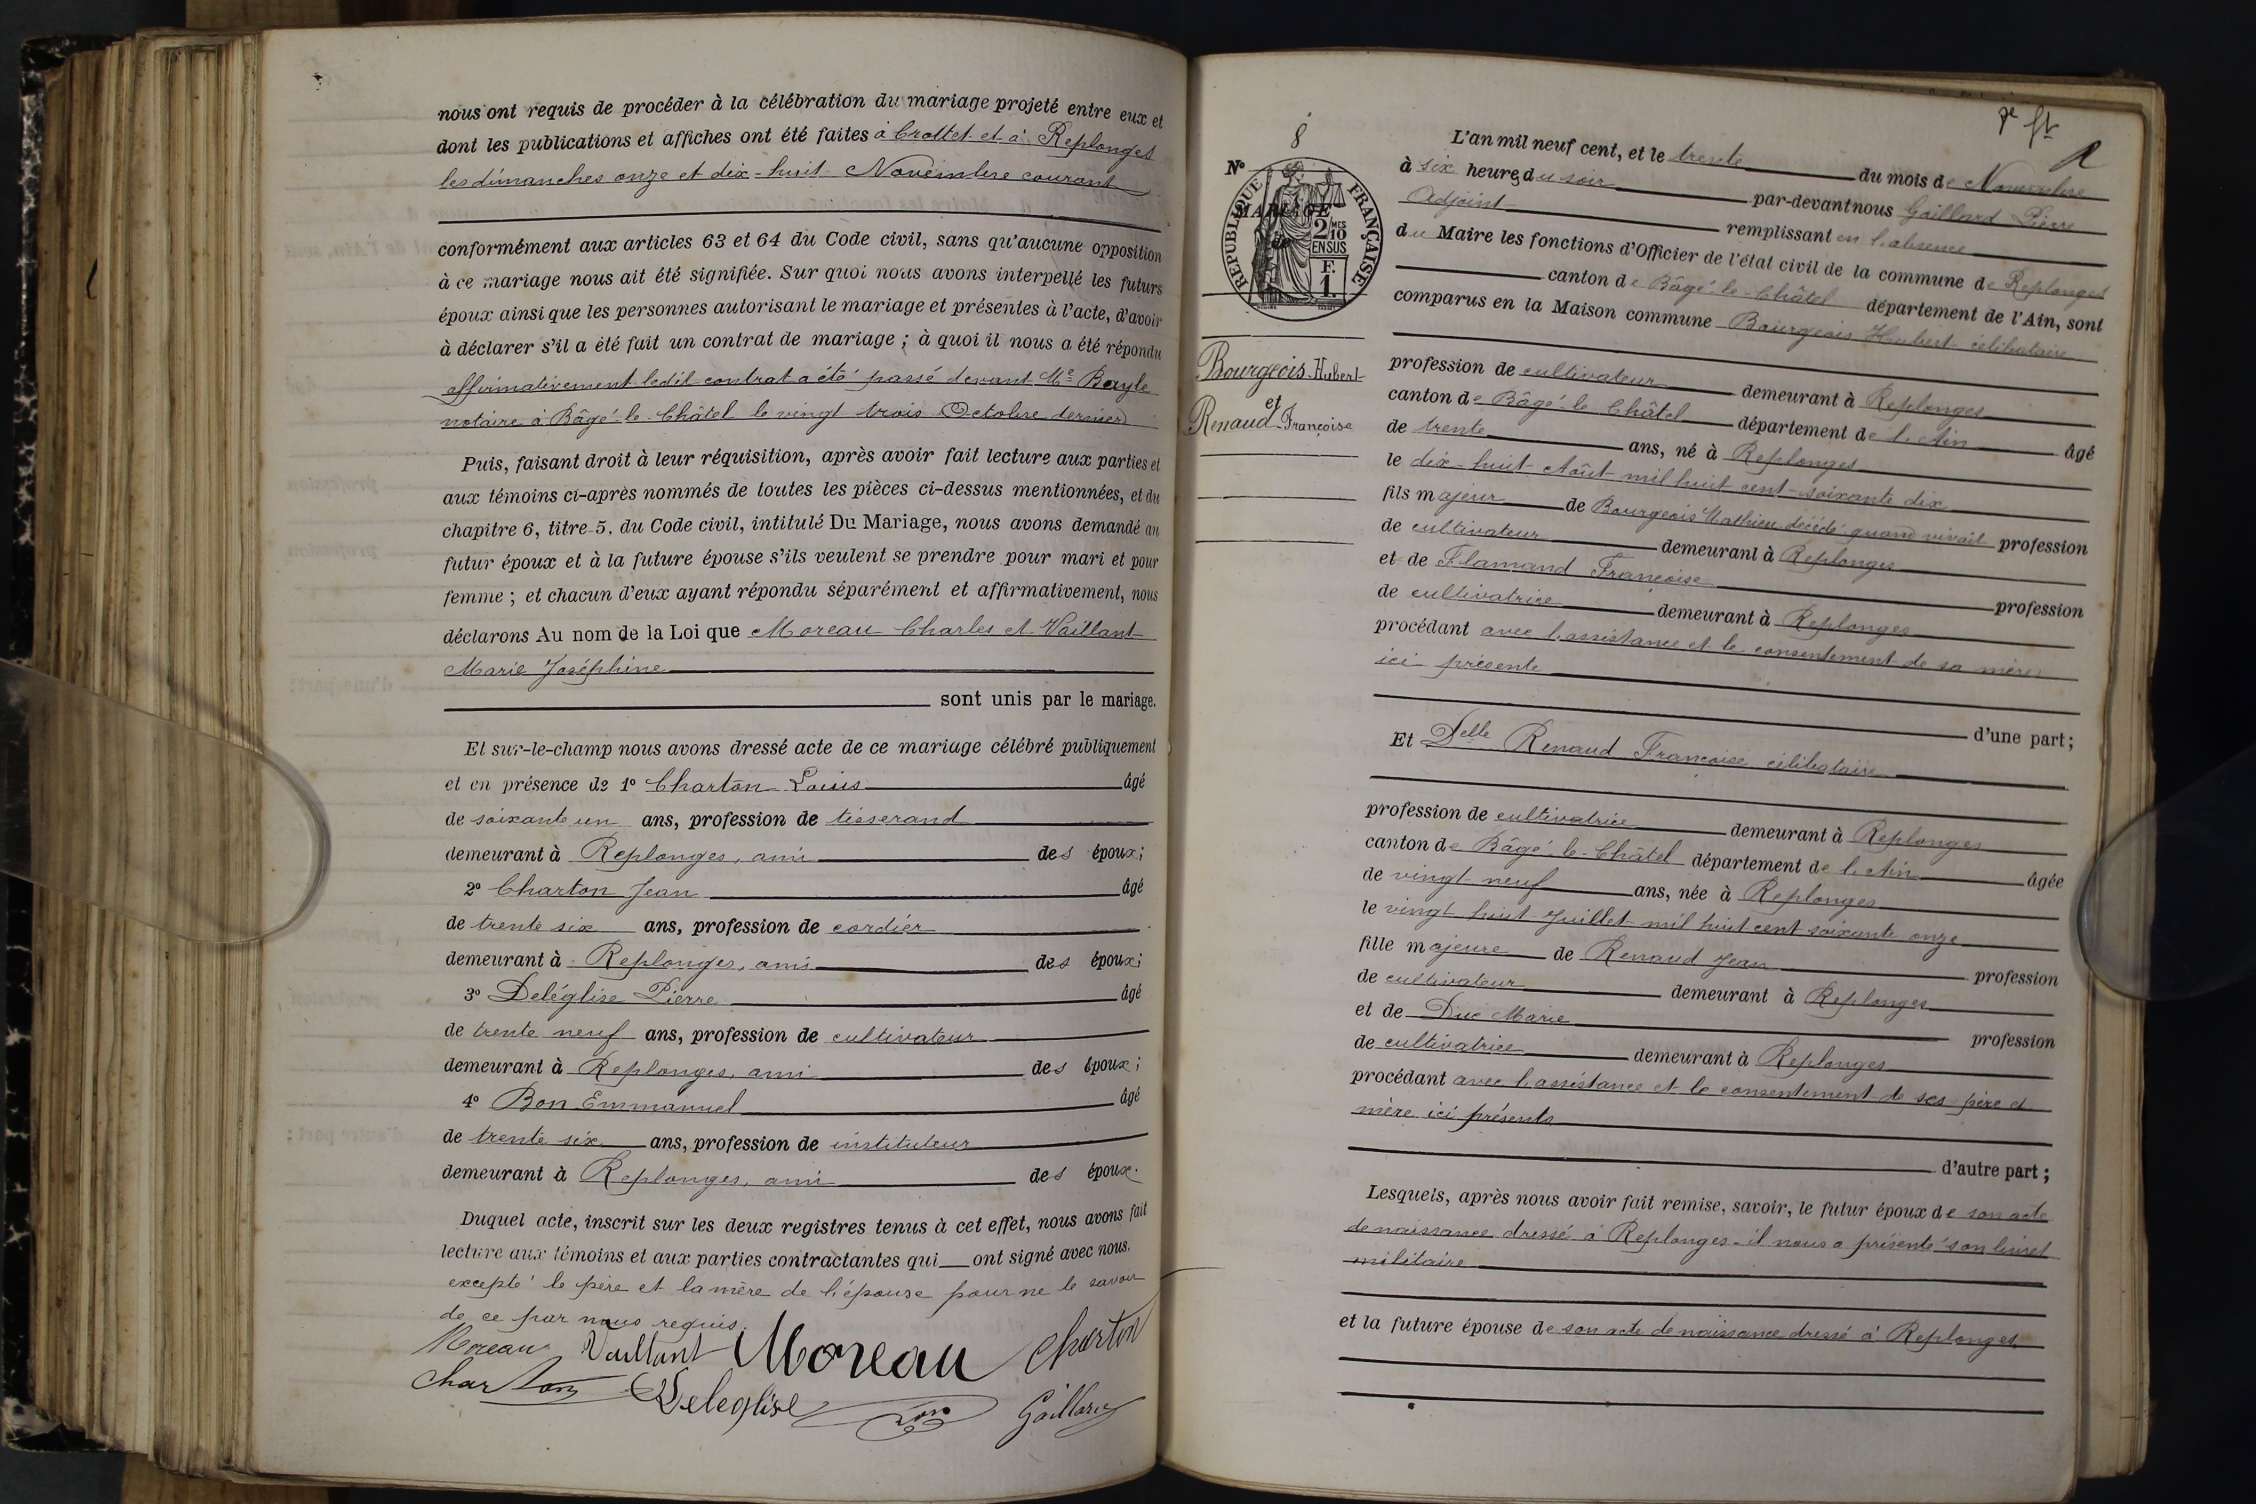 nous ont requis de procéder à la célébration du mariage projeté entre eux et
dont les publications et affiches ont été faites à Crottet et à Replonges
les dimanches onze et dix-huit Novembre courant
conformément aux articles 63 et 64 du Code civil, sans qu'aucune opposition
à ce mariage nous ait été signifiée. Sur quoi nous avons interpellé les futurs
époux ainsi que les personnes autorisant le mariage et présentes à l'acte, d'avoir
à déclarer s'il a été fait un contrat de mariage ; à quoi il nous a été répondu
affirmativement ledit contrat a été passé devant Me Bayle
notaire à Bâgé-le-Châtel le vingt trois Octobre dernier
Puis, faisant droit à leur réquisition, après avoir fait lecture aux parties et
aux témoins ci-après nommés de toutes les pièces ci-dessus mentionnées, et du
chapitre 6, titre 5. du Code civil, intitulé Du Mariage, nous avons demandé au
futur époux et à la future épouse s'ils veulent se prendre pour mari et pour
femme ; et chacun d'eux ayant répondu séparément et affirmativement, nous
déclarons Au nom de la Loi que Moreau Charles et Vaillant
Marie Joséphine
sont unis par le mariage.
Et sur-le-champ nous avons dressé acte de ce mariage célébré publiquement
et en présence de 1º Charton Louis âgé
de soixante un ans, profession de tisserand
demeurant à Replonges, ami des époux;
2º Charton Jean âgé
de trente six ans, profession de cordier
demeurant à Replonges, ami des époux;
3º Deléglise Pierre âgé
de trente neuf ans, profession de cultivateur
demeurant à Replonges, ami des époux;
4º Bon Emmanuel âgé
de trente six ans, profession de instituteur
demeurant à Replonges, ami des époux.
Duquel acte, inscrit sur les deux registres tenus à cet effet, nous avons fait
lecture aux témoins et aux parties contractantes qui ont signé avec nous.
excepté le père et la mère de l'épouse pour ne le savoir
de ce par nous requis.
Moreau Vaillant Moreau Charton
Charton Deleglise Bon Gaillard
8
Nº
MARIAGE
de
REPUBLIQUE FRANÇAISE
2/10 MES
EN SUS
F.
1.
Bourgeois Hubert
et
Renaud Françoise
L'an mil neuf cent, et le trente du mois de Novembre
à six heures du soir par-devant nous Gaillard Pierre
Adjoint remplissant en l'absence
du Maire les fonctions d'Officier de l'état civil de la commune de Replonges
canton de Bâgé-le-Châtel département de l'Ain, sont
comparus en la Maison commune Bourgeois Hubert célibataire
profession de cultivateur demeurant à Replonges
canton de Bâgé-le-Châtel département de l'Ain âgé
de trente ans, né à Replonges
le dix-huit Août mil huit cent soixante dix
fils majeur de Bourgeois Mathieu décédé quand vivait profession
de cultivateur demeurant à Replonges
et de Flamand Françoise profession
de cultivatrice demeurant à Replonges
procédant avec l'assistance et le consentement de sa mère
ici présente
d'une part;
Et Delle Renaud Françoise célibataire
profession de cultivatrice demeurant à Replonges
canton de Bâgé-le-Châtel département de l'Ain âgée
de vingt-neuf ans, née à Replonges
le vingt huit Juillet mil huit cent soixante onze
fille majeure de Renaud Jean profession
de cultivateur demeurant à Replonges
et de Duc Marie profession
de cultivatrice demeurant à Replonges
procédant avec l'assistance et le consentement de ses père et
mère ici présents
d'autre part ;
Lesquels, après nous avoir fait remise, savoir, le futur époux de son acte
de naissance dressé à Replonges - il nous a présenté son livret
militaire
et la future épouse de son acte de naissance dressé à Replonges